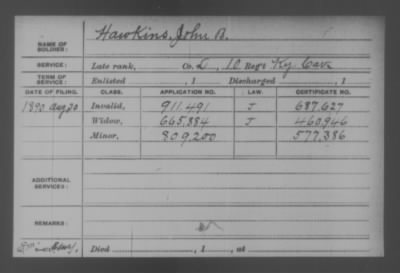 NAME OF SOLDIER: Hawkins, John B.
SERVICE: Late rank, Co. D, 10 Reg't Ky. Cav.
TERM OF SERVICE: Enlisted , 1 Discharged , 1
DATE OF FILING. CLASS. APPLICATION NO. LAW. CERTIFICATE NO.
1890 Aug 20 Invalid, 911.491 J 687.627
Widow, 665,884 J 460,946
Minor, 809,200 577,386
ADDITIONAL SERVICES:
REMARKS:
Died , 1 , at